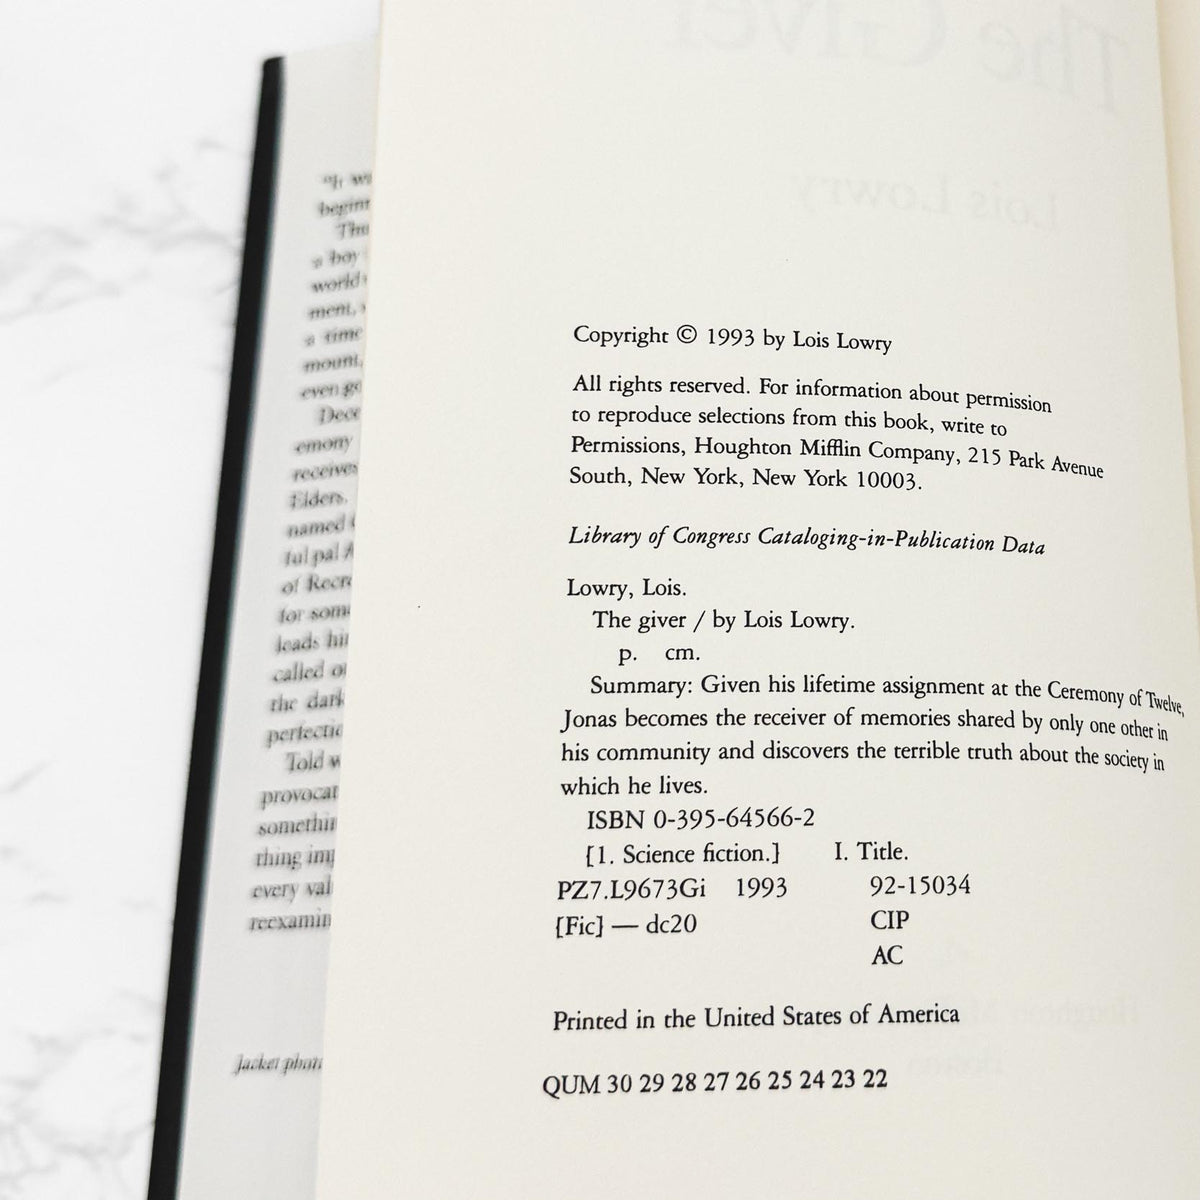 The Giver
Lois Lowry
"It
begin
The
a boy
world
ment,
a time
mount,
even
Dece
emony
receives
Elders.
named
ful pal A
of Recre
for som
leads hi
called
the dark
perfectio
Told w
provocat
somethin
thing im
every val
reexamin
Jacket phot
Copyright © 1993 by Lois Lowry
All rights reserved. For information about permission
to reproduce selections from this book, write to
Permissions, Houghton Mifflin Company, 215 Park Avenue
South, New York, New York 10003.
Library of Congress Cataloging-in-Publication Data
Lowry, Lois.
The giver / by Lois Lowry.
p. cm.
Summary: Given his lifetime assignment at the Ceremony of Twelve,
Jonas becomes the receiver of memories shared by only one other in
his community and discovers the terrible truth about the society in
which he lives.
ISBN 0-395-64566-2
[1. Science fiction.] I. Title.
PZ7.L9673Gi 1993 92-15034
[Fic] — dc20 CIP
AC
Printed in the United States of America
QUM 30 29 28 27 26 25 24 23 22